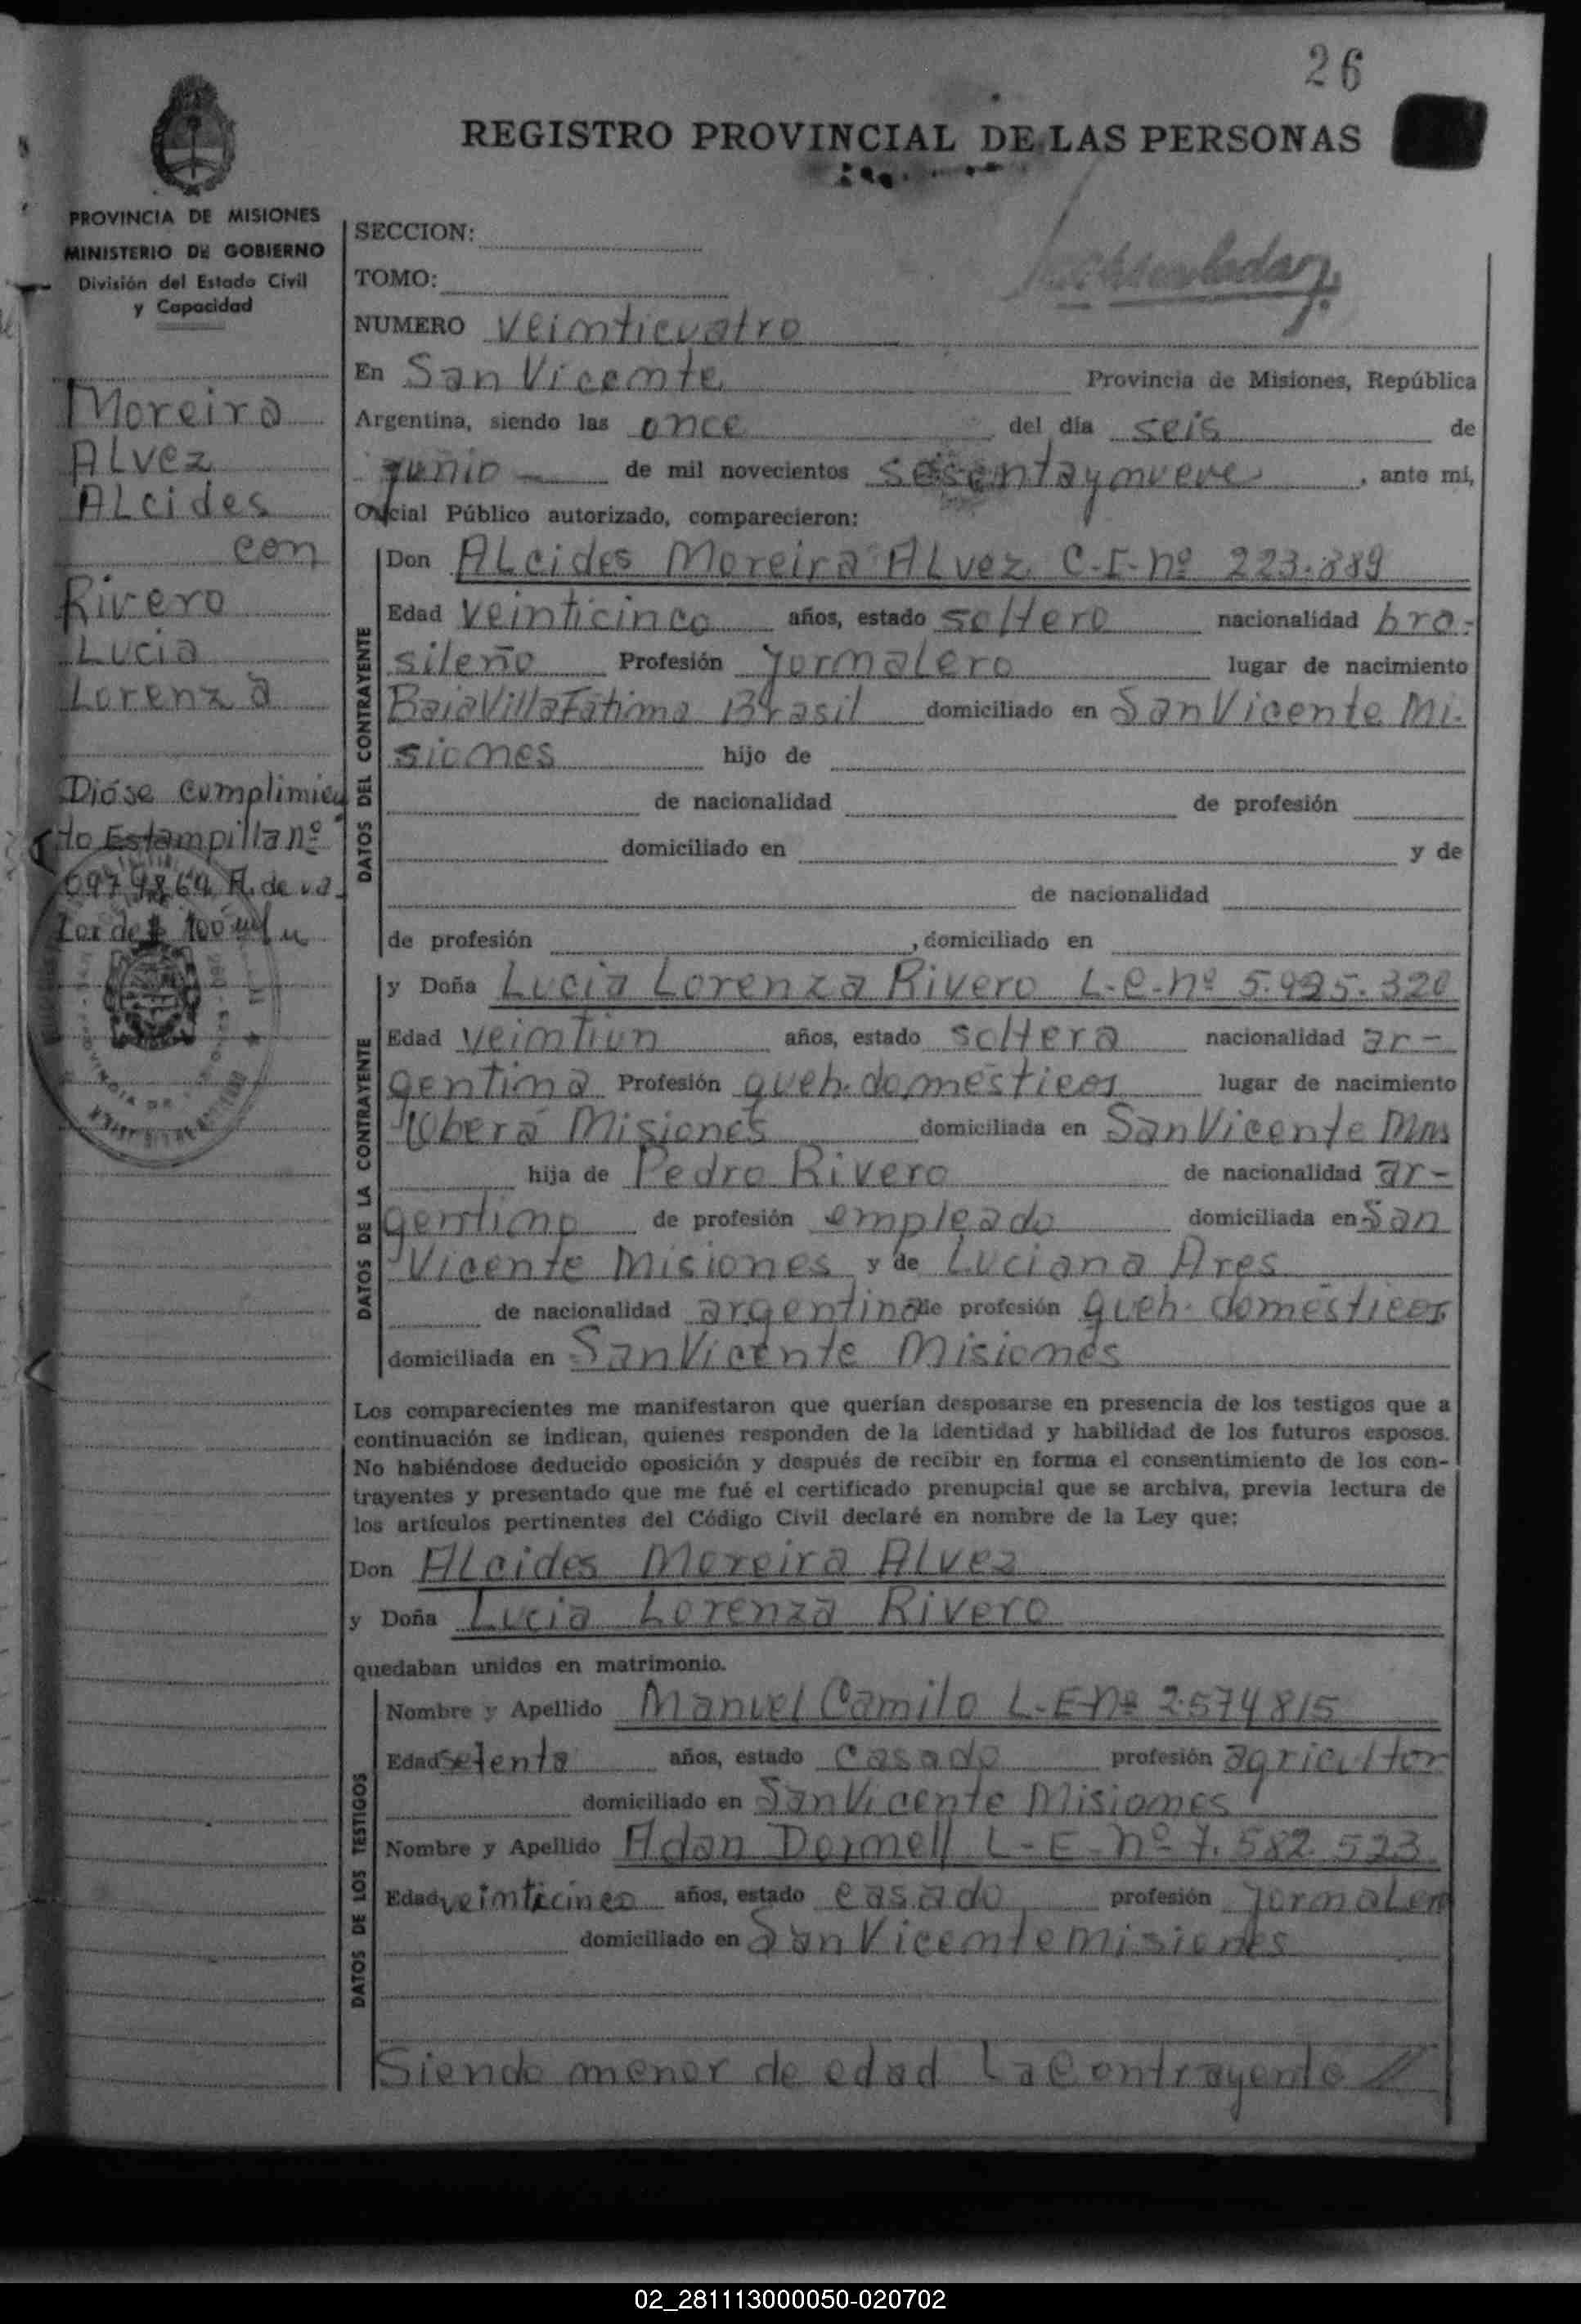 26
REGISTRO PROVINCIAL DE LAS PERSONAS
PROVINCIA DE MISIONES
MINISTERIO DE GOBIERNO
División del Estado Civil
y Capacidad
Moreira
Alvez
Alcides
con
Rivero
Lucia
Lorenza
Dióse cumplimien
to Estampilla nº
A. de va
lor de $ 100
SECCION:
TOMO:
NUMERO veinticuatro
En San Vicente Provincia de Misiones, República
Argentina, siendo las once del día seis de
junio de mil novecientos sesenta y nueve, ante mí,
Oficial Público autorizado, comparecieron:
DATOS DEL CONTRAYENTE
Don Alcides Moreira Alvez C.I. nº 223.889
Edad veinticinco años, estado soltero nacionalidad bra-
sileño Profesión jornalero lugar de nacimiento
Baia Villa Fatima Brasil domiciliado en San Vicente Mi-
siones hijo de
de nacionalidad de profesión
domiciliado en y de
de nacionalidad
de profesión , domiciliado en
DATOS DE LA CONTRAYENTE
y Doña Lucia Lorenza Rivero L.C. nº 5.995.320
Edad veintiun años, estado soltera nacionalidad ar-
gentina Profesión queh. domésticos lugar de nacimiento
Oberá Misiones domiciliada en San Vicente Mns
hija de Pedro Rivero de nacionalidad ar-
gentino de profesión empleado domiciliada en San
Vicente Misiones y de Luciana Ares
de nacionalidad argentina de profesión queh. domésticos
domiciliada en San Vicente Misiones
Los comparecientes me manifestaron que querían desposarse en presencia de los testigos que a
continuación se indican, quienes responden de la identidad y habilidad de los futuros esposos.
No habiéndose deducido oposición y después de recibir en forma el consentimiento de los con-
trayentes y presentado que me fué el certificado prenupcial que se archiva, previa lectura de
los artículos pertinentes del Código Civil declaré en nombre de la Ley que:
Don Alcides Moreira Alvez
y Doña Lucia Lorenza Rivero
quedaban unidos en matrimonio.
DATOS DE LOS TESTIGOS
Nombre y Apellido Manuel Camilo L-E-nº 2.574815
Edad setenta años, estado casado profesión agricultor
domiciliado en San Vicente Misiones
Nombre y Apellido Adan Dornell L-E-nº 7.582.523
Edad veinticinco años, estado casado profesión jornalero
domiciliado en San Vicente Misiones
Siendo menor de edad la contrayente //
02_281113000050-020702